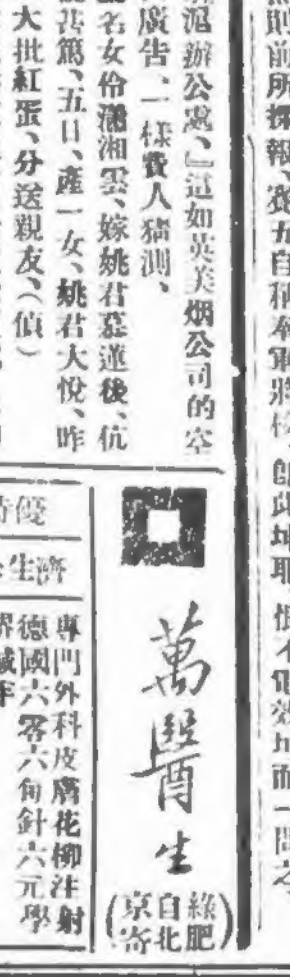 則前所探報、
自稱奉軍將
此地耶、恨不
而一問之
滬辦公處、」這如英美烟公司的空
廣告、一樣費人猜測、
名女伶瀟湘雲、嫁姚君慕蓮後、伉
篤、五日、產一女、姚君大悅、昨
大批紅蛋、分送親友、(偵)
萬醫生
(綠肥
自北
京寄)
優待
濟生
專門外科皮膚花柳注射
德國六零六每針六元學
界減半